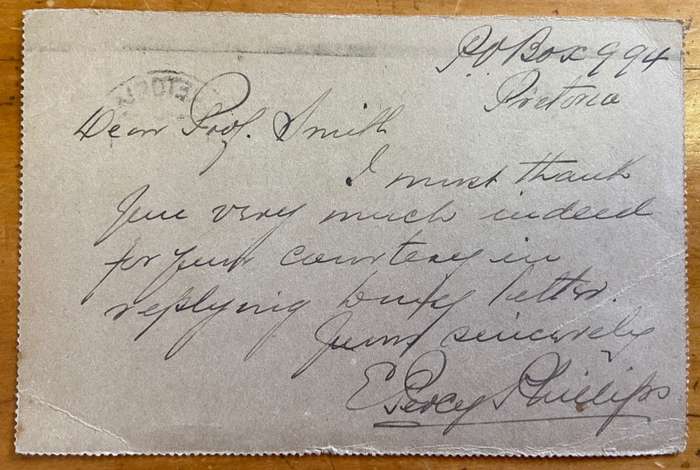 P.O Box 994
Pretoria
Dear Prof. Smith
I must thank
you very much indeed
for your courtesy in
replying to my letter.
Yours sincerely
E Percy Phillips